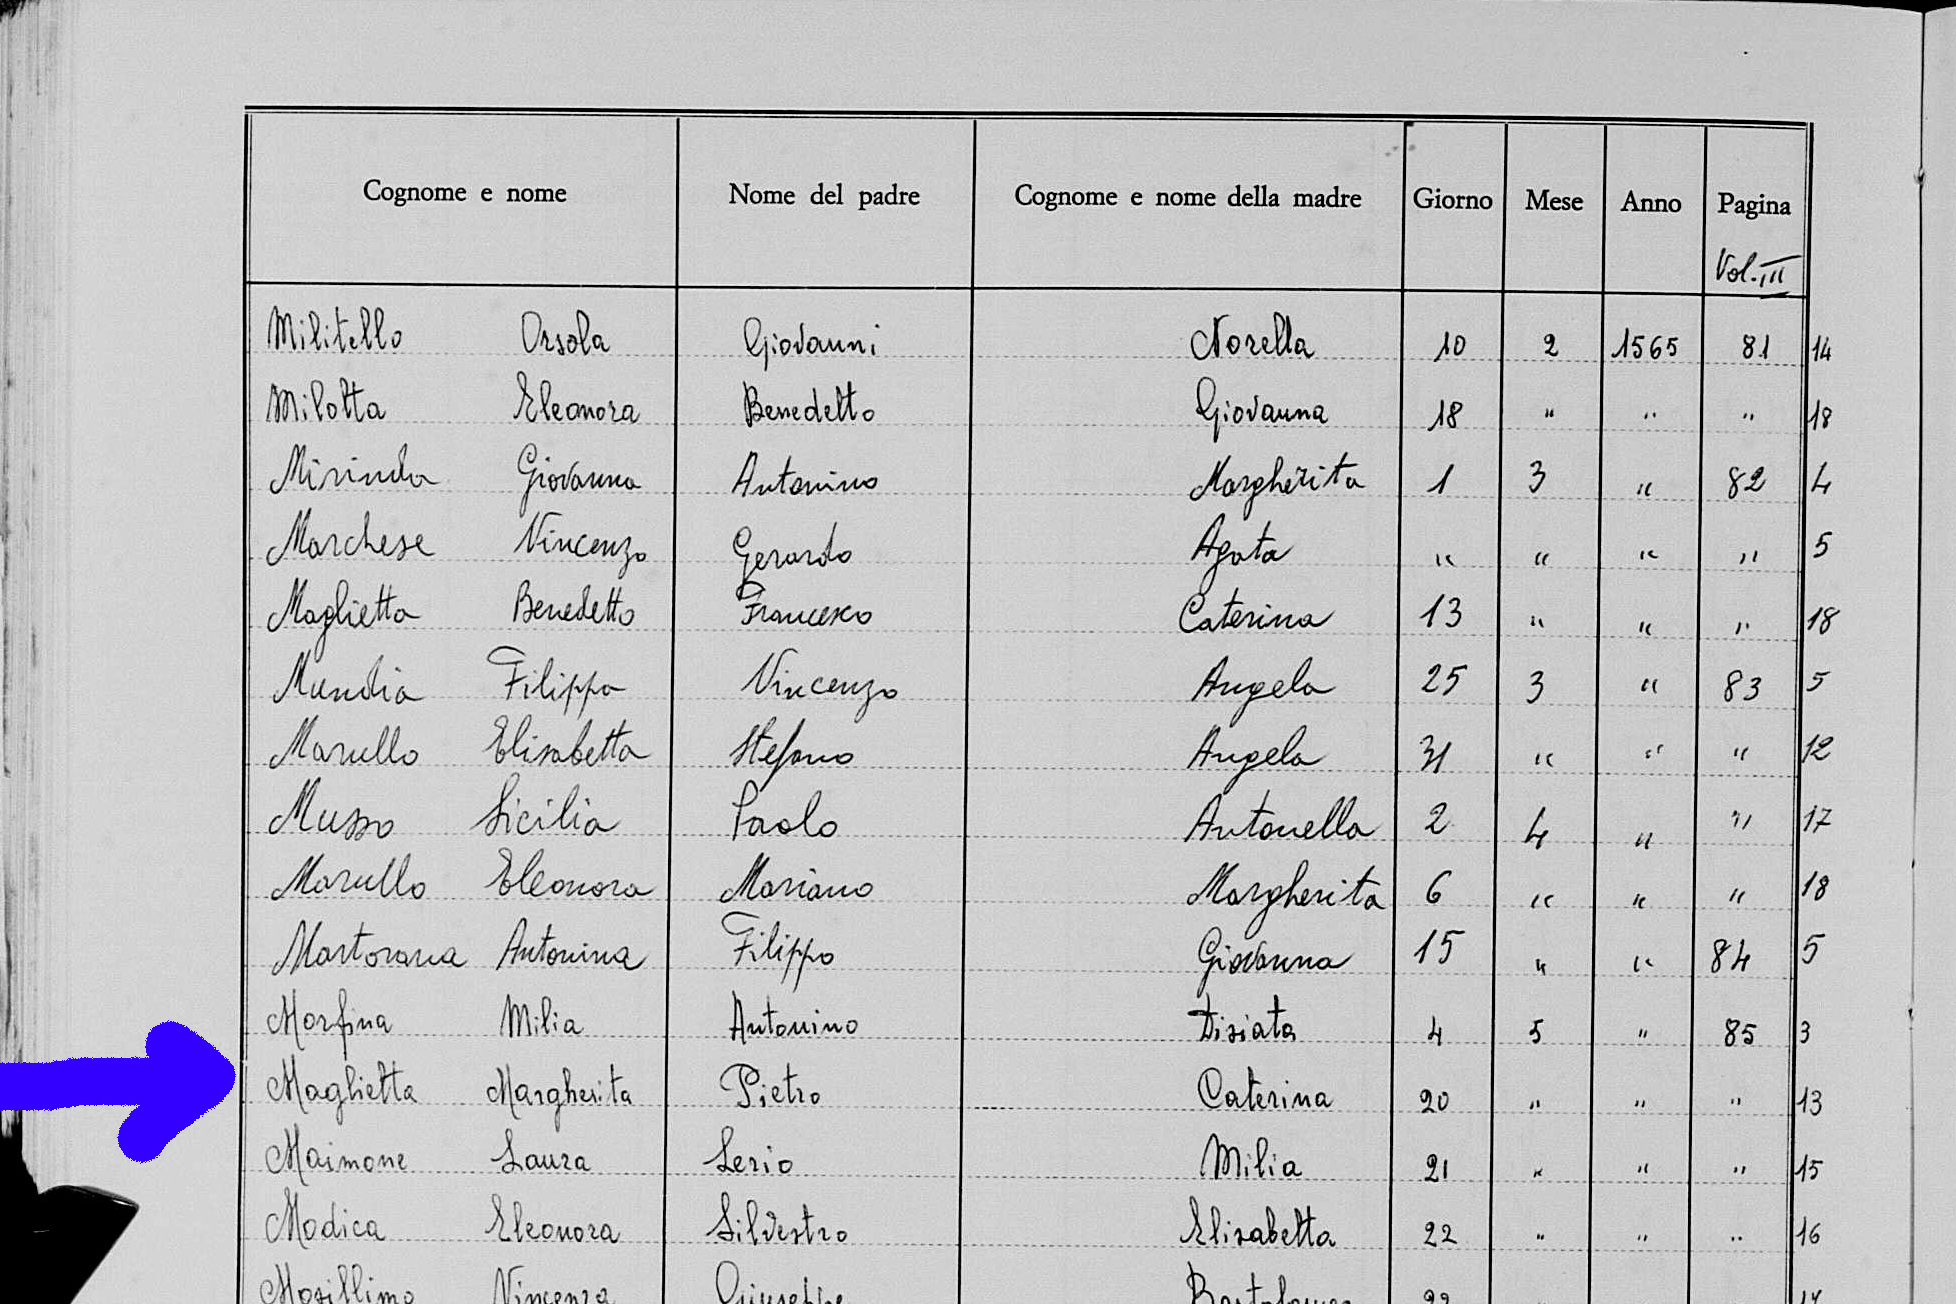 Cognome e nome Nome del padre Cognome e nome della madre Giorno Mese Anno Pagina
Vol. III
Militello Orsola Giovanni Norella 10 2 1565 81 14
Milotta Eleonora Benedetto Giovanna 18 " " " 18
Mirinda Giovanna Antonino Margherita 1 3 " 82 4
Marchese Vincenzo Gerardo Agata " " " " 5
Maglietta Benedetto Francesco Caterina 13 " " " 18
Mundia Filippa Vincenzo Angela 25 3 " 83 5
Marullo Elisabetta Stefano Angela 31 " " " 12
Musso Sicilia Paolo Antonella 2 4 " " 17
Marullo Eleonora Mariano Margherita 6 " " " 18
Martorana Antonina Filippo Giovanna 15 " " 84 5
Morfina Milia Antonino Disiata 4 5 " 85 3
Maglietta Margherita Pietro Caterina 20 " " " 13
Maimone Laura Lerio Milia 21 " " " 15
Modica Eleonora Silvestro Elisabetta 22 " " " 16
Vincenza Giuseppe